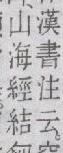 漢書注云。
山海經結